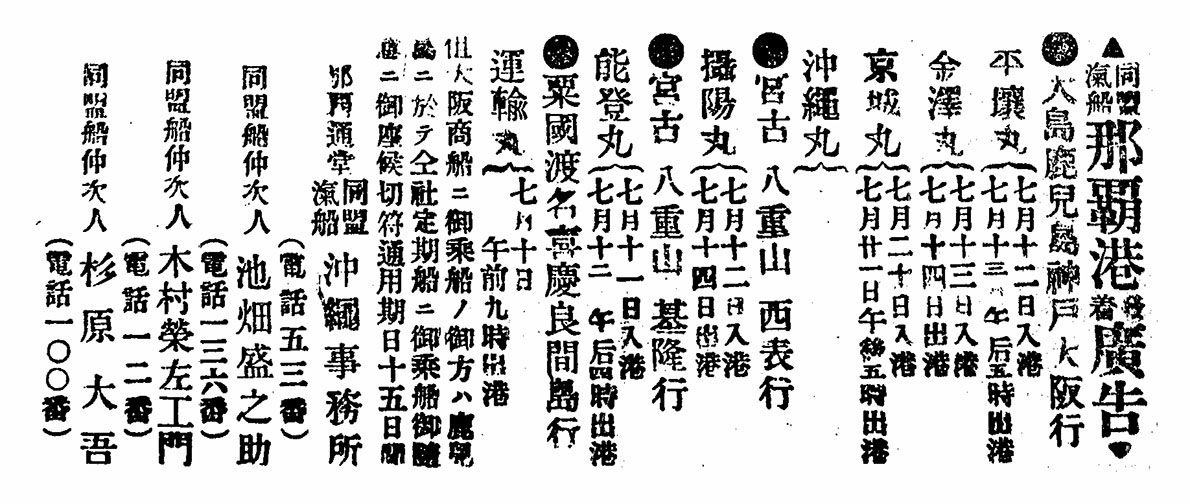 ▲同盟汽船那覇港發着廣告▼
●大島鹿兒島神戸大阪行
平壤丸{七月十二日入港 七月十三日午后五時出港
金澤丸{七月十三日入港 七月十四日出港
京城丸{七月二十日入港 七月廿一日午后五時出港
沖繩丸{
●宮古 八重山 西表行
攝陽丸{七月十二日入港 七月十四日出港
●宮古 八重山 基隆行
能登丸{七月十一日入港 七月十二 午后四時出港
●粟國渡名喜慶良間島行
運輸丸{七月十日 午前九時出港
但大阪商船ニ御乘船ノ御方ハ鹿兒
島ニ於テ仝社定期船ニ御乘船御隨
意ニ御座候切符通用期日十五日間
那覇西通堂 同盟汽船 沖繩事務所
(電話五三番)
同盟船仲次人 池畑盛之助
(電話一三六番)
同盟船仲次人 木村榮左工門
(電話一二番)
同盟船仲次人 杉原大吾
(電話一〇〇番)